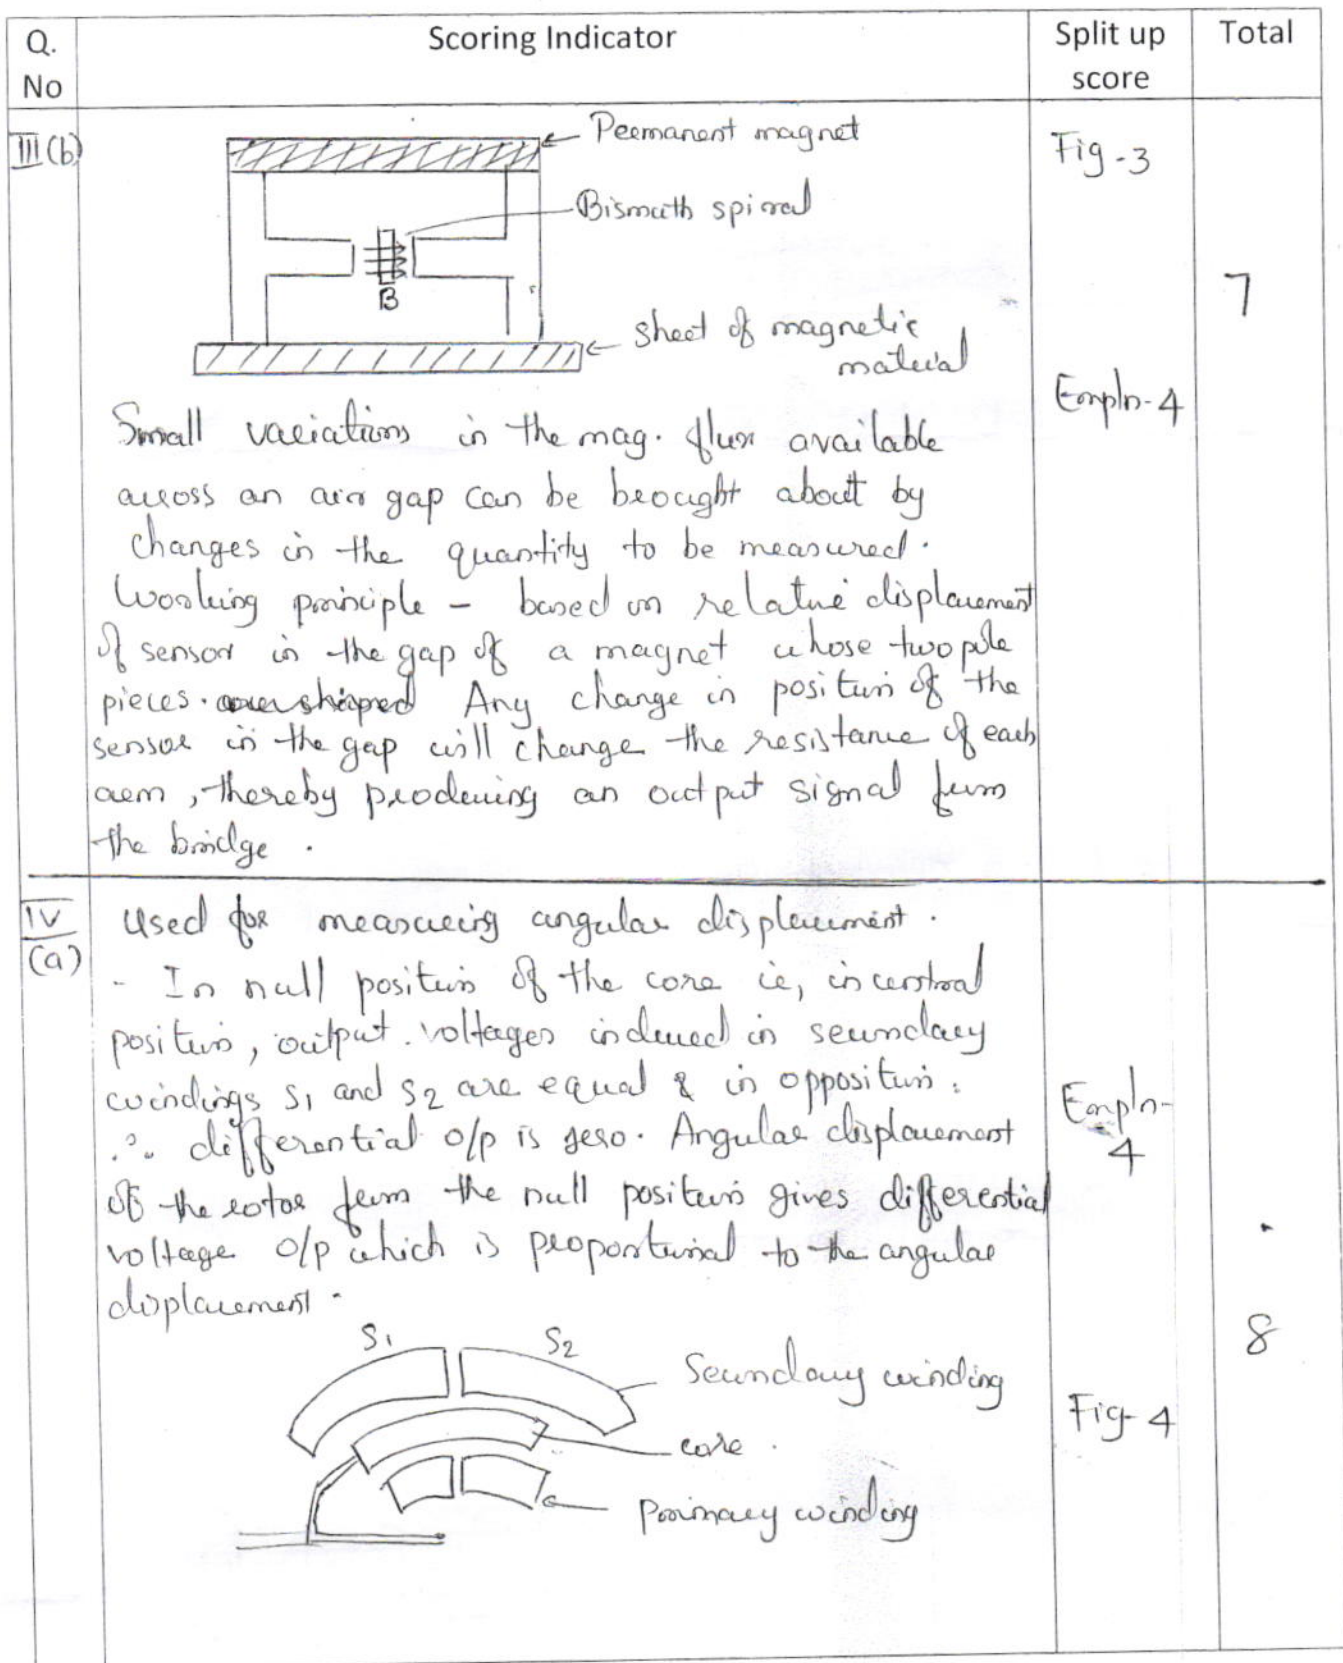 Q. No
Scoring Indicator
Split up score
Total
III (b)
Permanent magnet
Fig - 3
Bismuth spiral
B
7
sheet of magnetic
material
Expln - 4
Small variations in the mag. flux available
across an air gap can be brought about by
changes in the quantity to be measured.
Working principle - based on relative displacement
of sensor in the gap of a magnet whose two pole
pieces. Any change in position of the
sensor in the gap will change the resistance of each
arm, thereby producing an output signal from
the bridge.
IV (a)
Used for measuring angular displacement.
- In null position of the core ie, in central
position, output voltages induced in secondary
windings S1 and S2 are equal & in opposition.
∴ differential o/p is zero. Angular displacement
of the rotor from the null position gives differential
voltage o/p which is proportional to the angular
displacement.
Expln - 4
8
S1 S2
Secondary winding
core
Primary winding
Fig - 4